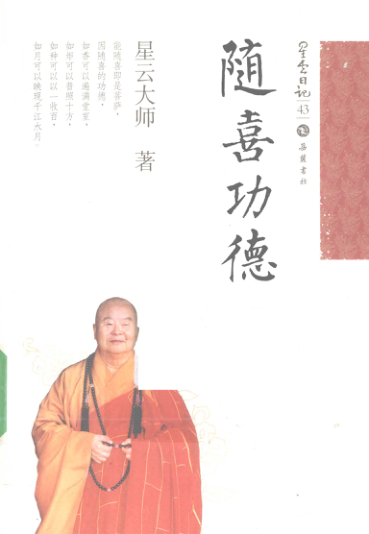 星云日记
43
岳麓书社
随喜功德
星云大师 著
能随喜即是菩萨，
因随喜的功德，
如香可以遍满堂室，
如光可以普照十方，
如种可以以一收百，
如月可以映现千江水月。